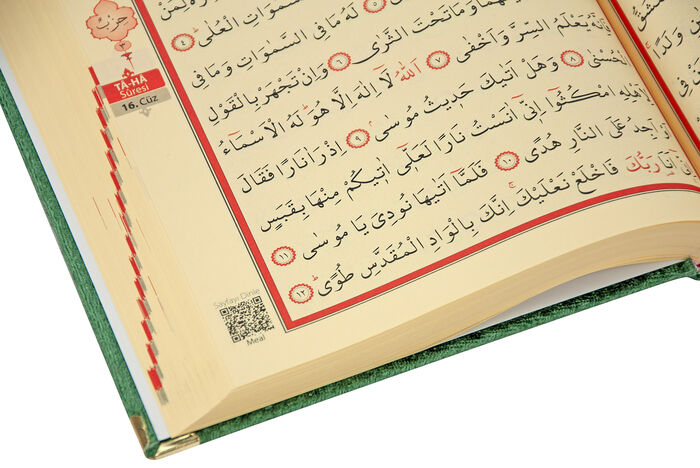 الْعُلٰى ٤
٥ لَهُ مَا فِى السَّمٰوَاتِ وَمَا فِى
بَيْنَهُمَا وَمَا تَحْتَ الثَّرٰى ٦ وَاِنْ تَجْهَرْ بِالْقَوْلِ
فَاِنَّهُ يَعْلَمُ السِّرَّ وَاَخْفٰى ٧ اَللّٰهُ لَا اِلٰهَ اِلَّا هُوَ لَهُ الْاَسْمَاءُ
الْحُسْنٰى ٨ وَهَلْ اَتٰيكَ حَدِيثُ مُوسٰى ٩ اِذْ رَاٰ نَارًا فَقَالَ
لِاَهْلِهِ امْكُثُوا اِنِّى اٰنَسْتُ نَارًا لَعَلِّى اٰتِيكُمْ مِنْهَا بِقَبَسٍ
اَوْ اَجِدُ عَلَى النَّارِ هُدًى ١٠ فَلَمَّا اَتٰيهَا نُودِىَ يَا مُوسٰى ١١
اَنَا رَبُّكَ فَاخْلَعْ نَعْلَيْكَ اِنَّكَ بِالْوَادِ الْمُقَدَّسِ طُوًى ١٢
حزب
٣
TÂ-HÂ
Sûresi
16. Cüz
Sayfayı Dinle
Meal